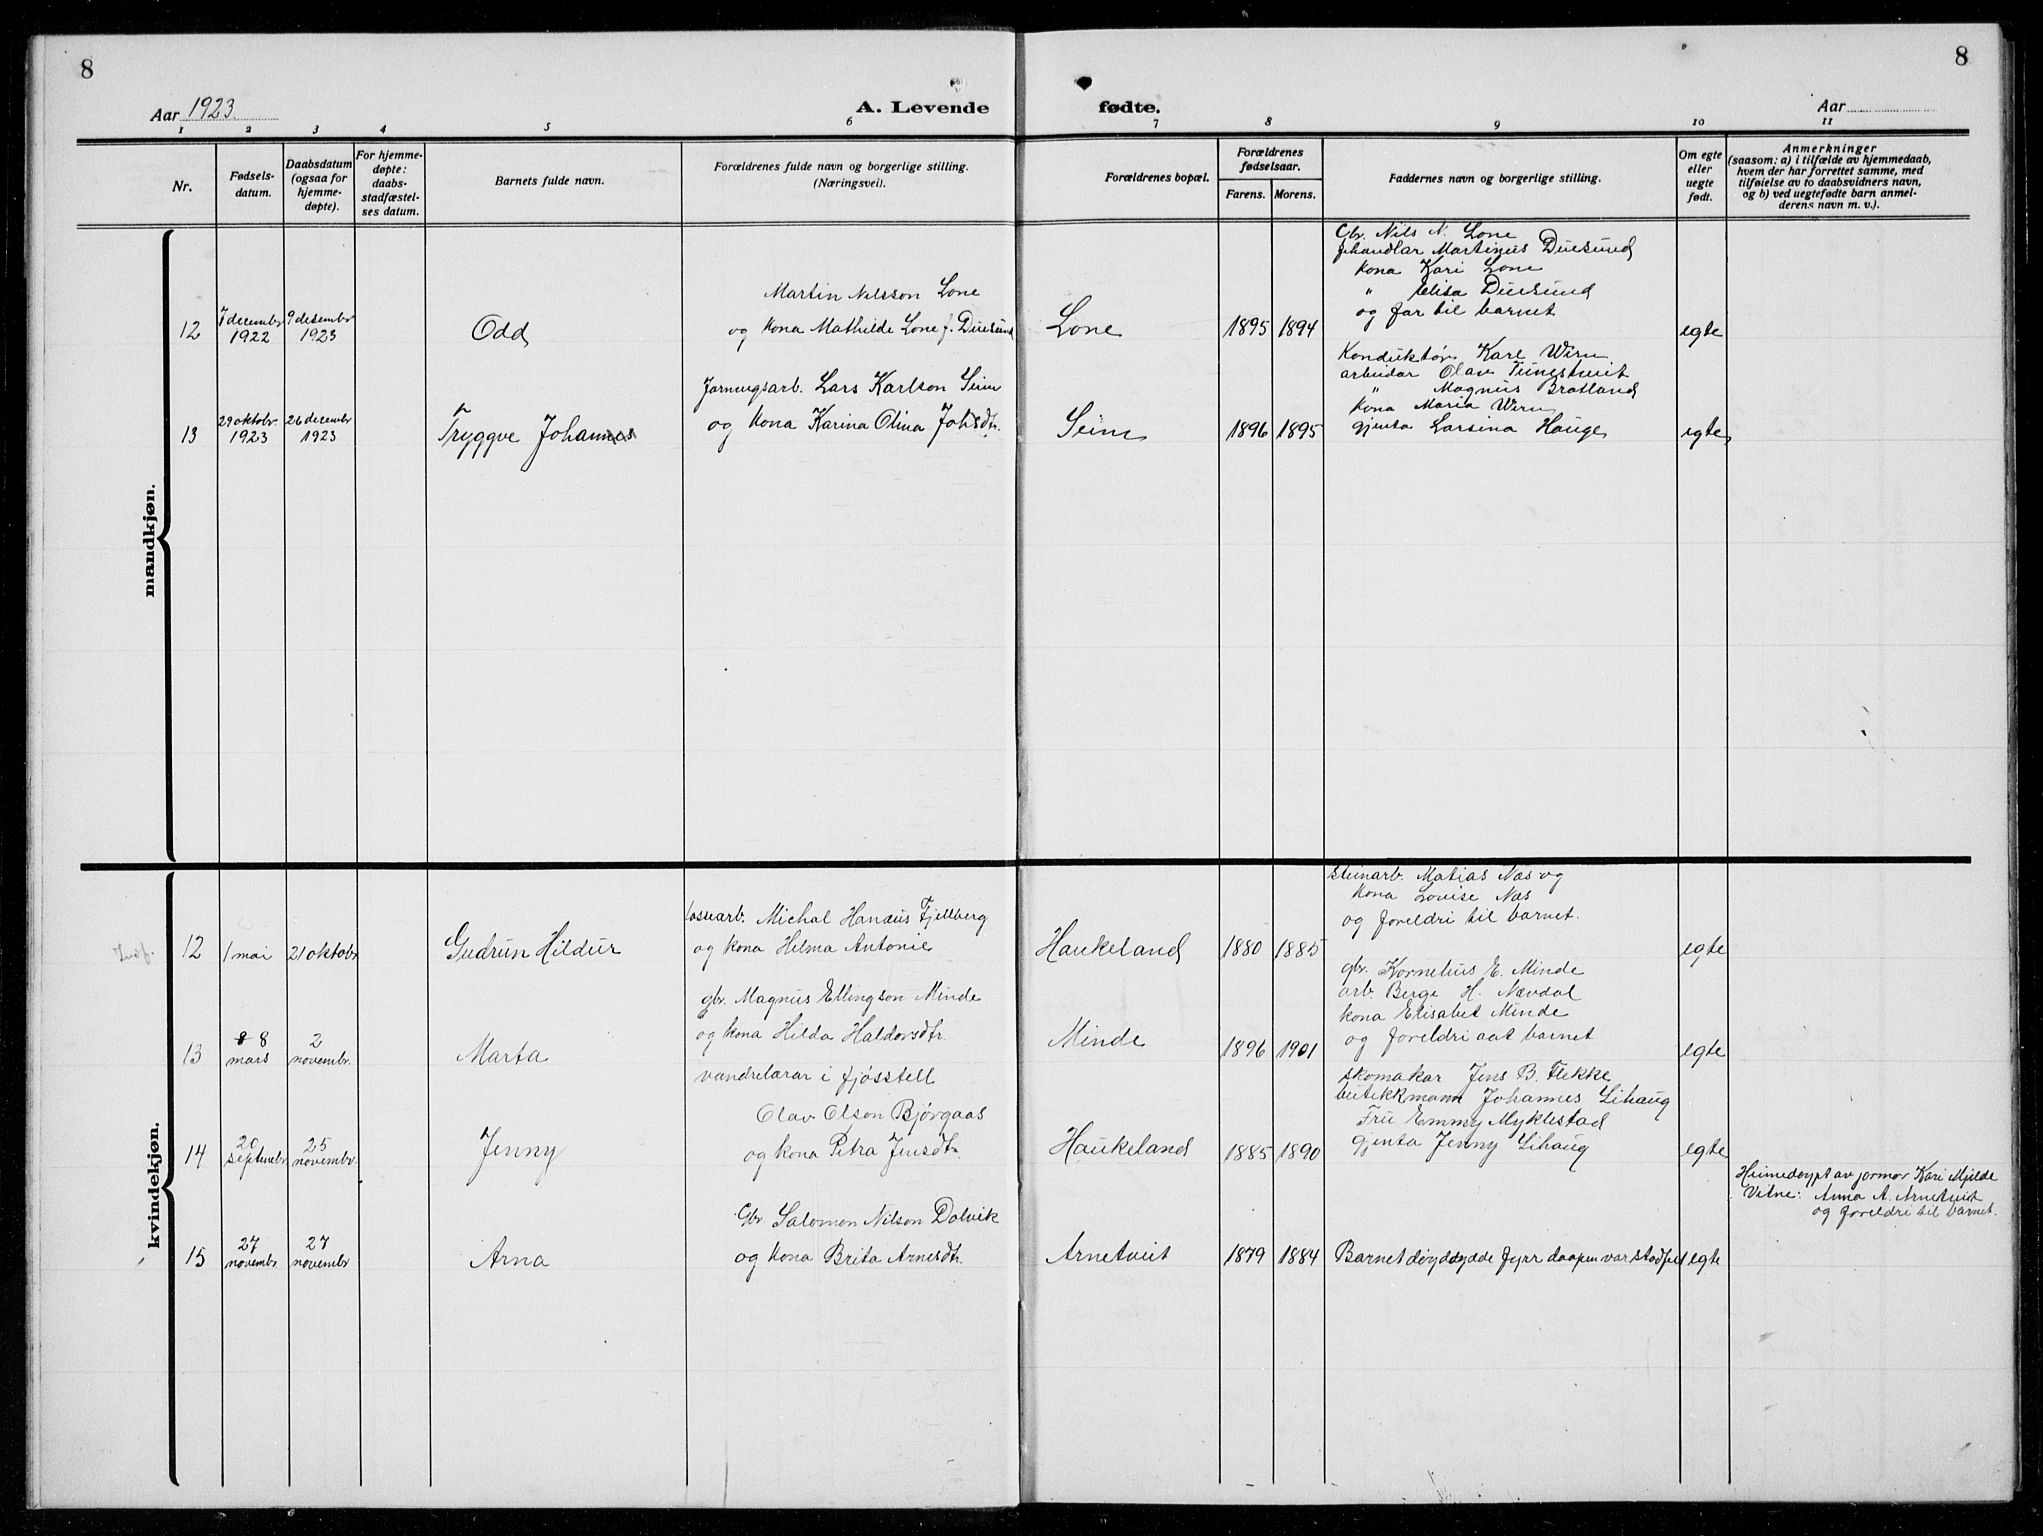 8
8
Aar 1923.
A. Levende
fødte.
Aar
1 2 3 4 5 6 7 8 9 10 11
Nr.
Fødsels-
datum.
Daabsdatum
(ogsaa for
hjemme-
døpte).
For hjemme-
døpte:
daabs-
stadfæstel-
ses datum.
Barnets fulde navn.
Forældrenes fulde navn og borgerlige stilling.
(Næringsvei).
Forældrenes bopæl.
Forældrenes
fødselsaar.
Farens. Morens.
Faddernes navn og borgerlige stilling.
Om egte
eller
uegte
født.
Anmerkninger
(saasom: a) i tilfælde av hjemmedaab,
hvem der har forrettet samme, med
tilføielse av to daabsvidners navn,
og b) ved uegtefødte barn anmel-
derens navn m. v.).
mandkjøn.
12
7 decembr
1922
9 desembr
1923
Odd
Martin Nilsson Lone
og kona Mathilde Lone f. Duesund
Lone
1895 1894
Gbr. Nils N. Lone
Martinus Duesund
kona Kari Lone
" Elisa Duesund
og far til barnet
egte
13
29 oktobr.
1923
26 decembr
1923
Tryggve Johannes
Jarnvegsarb. Lars Karlson Seim
og kona Karina Olina Johsdtr.
Seim
1896 1895
Konduktør Karl Wirn
arbeidar Olav Tungetveit
" Magnus Bratland
kona Maria Wirn
gjenta Larsina Hauge
egte
kvindekjøn.
12
1 mai
21 oktobr
Gudrun Hildur
lossearb. Michal Hanæus Fjellberg
og kona Helma Antonie
Haukeland
1880 1885
Steinarb. Matias Næs og
kona Lovise Næs
og foreldri til barnet.
egte
13
8
mars
2
novembr.
Marta
gbr. Magnus Ellingson Minde
og kona Hilda Haldorsdtr.
Minde
1896 1901
gbr. Kornelius E. Minde
arb. Berge H. Nævdal
kona Elisabet Minde
og foreldri aat barnet
egte
14
20
septembr.
25
novembr.
Jenny
vandrelærar i fjósstell
Olav Olson Bjørgaas
og kona Petra Jensdtr.
Haukeland
1885 1890
skomakar Jens B. Flekke
butikkmann Johannes Lihaug
Fru Emmy Myklestad
gjenta Jenny Lihaug
egte
15
27
novembr.
27
novembr
Arna
Gbr Salomon Nilson Dalvik
og kona Brita Arnesdtr.
Arnetveit
1879 1884
Barnet døydde fyrr daapen var stadfest
egte
Heimedøypt av jormor Kari Mjelde
Vitne: Anna A. Arnetveit
og foreldri til barnet.